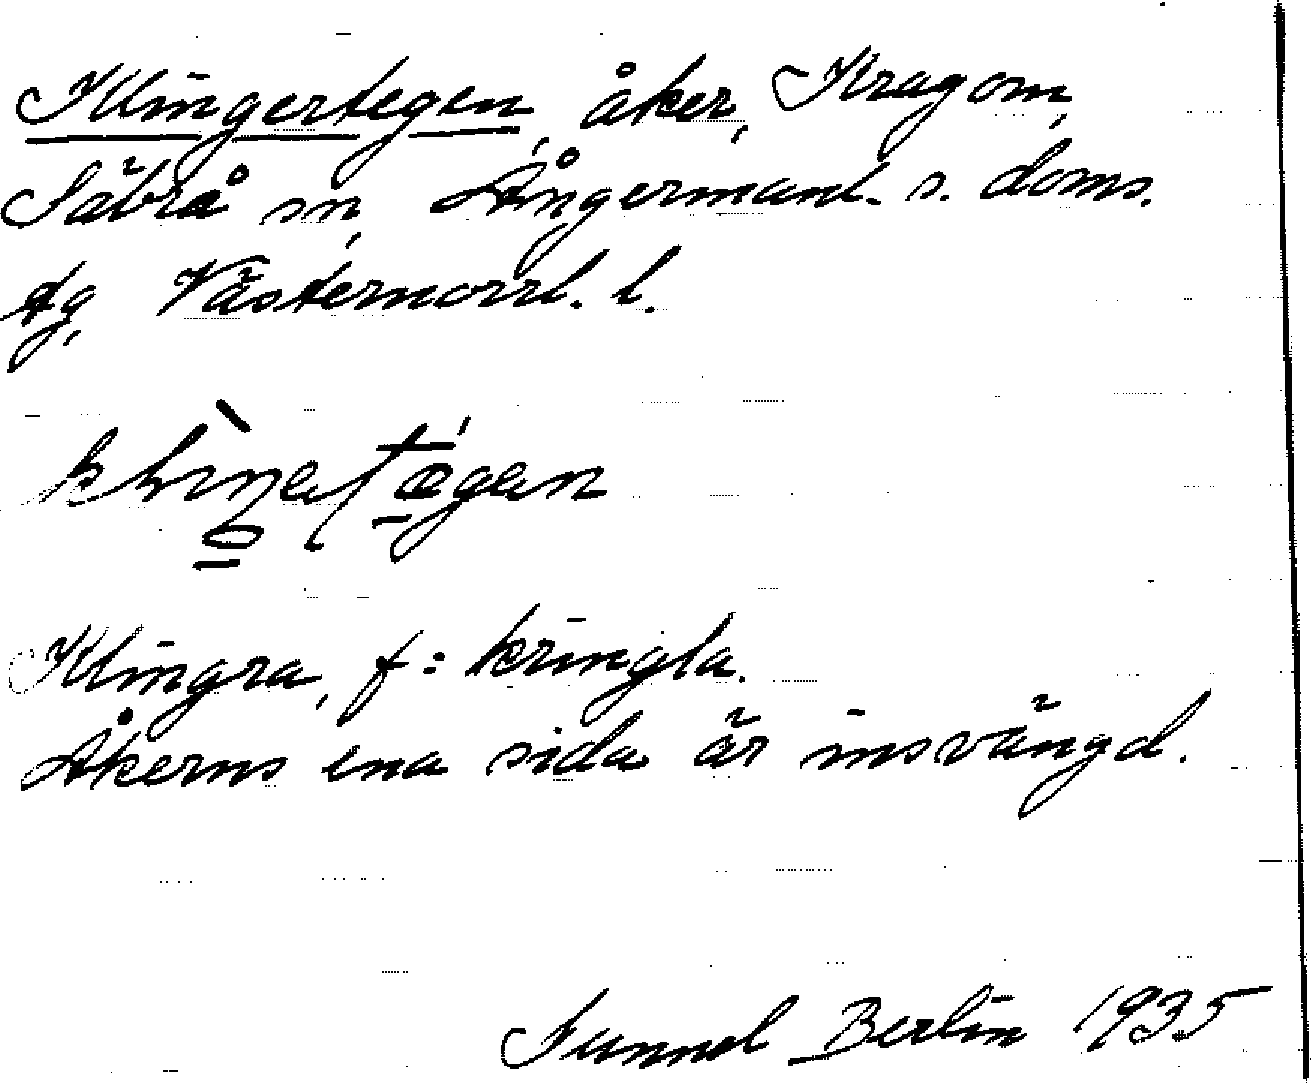 Klingertegen, åker, Kragom,
Säbrå sn, Ångermanl. s. doms.
tg, Västernorrl. l.
Klingra, f: kringla.
Åkerns ena sida är insvängd.
Gunnel Berlin 1935